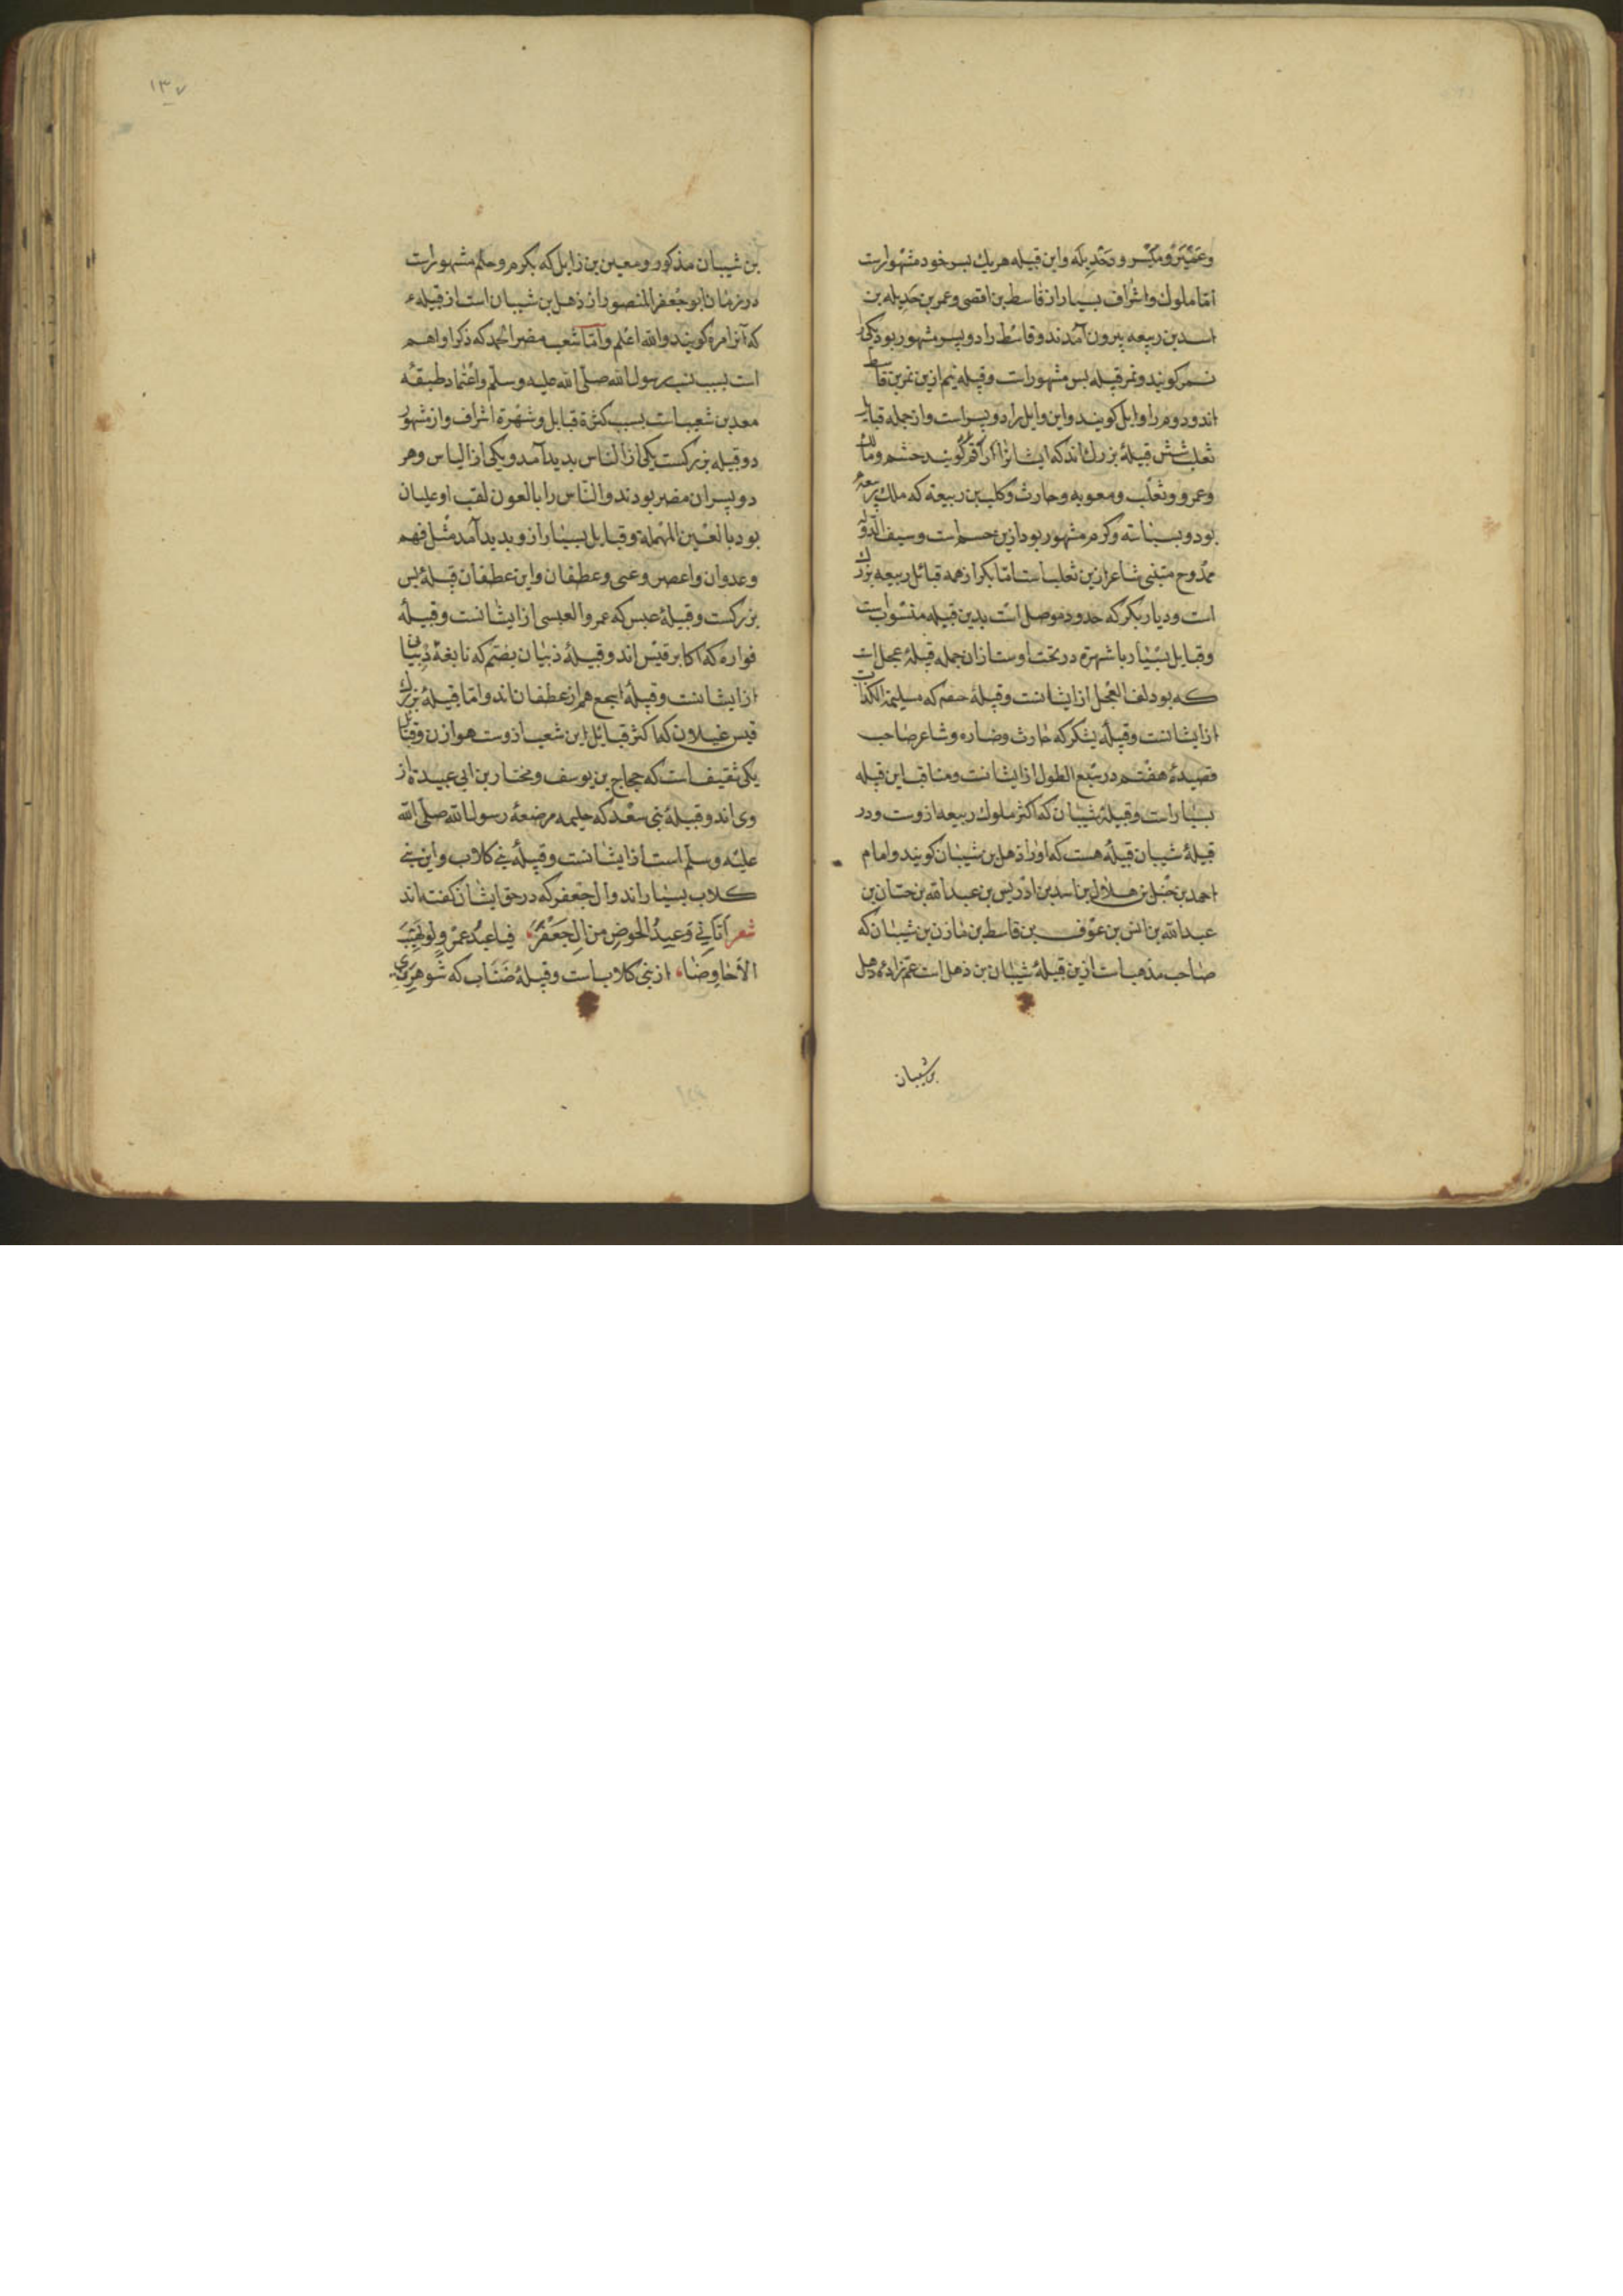 وعنیزه و مکسر و جدیله واین قبیله هریك بسر خود مشهورست
امّا ملوك واشراف بسیار از قاسط بن افصی وعمر بن جدیله بن
اسد بن ربیعه بیرون آمدند وقاسط را دو پسر مشهور بود یکی را
نمر کویند ونمر قبیله بس مشهورست وقبیله تیم ازین نمر بن قاسط
اند ودوم را وایل کویند واین وایل را دو پسر است وازجمله قبایل
ثعلب شش قبیلۀ بزرك اند که ایشانرا اراقم کویند جشم ومالك
وعمرو وثعلب ومعویه وحارث وکلیب بن ربیعه که ملك ربیعۀ
بود و بسیاسة وکرم مشهور بود ازین جشم است وسیف الدوله
ممدوح متنبی شاعر ازین ثعلب است امّا بکر ازهمه قبائل ربیعه بزرك
است ودیار بکر که حدود موصل است بدین قبیله منسوبست
وقبایل بسیار با شهرة در تحت اوست ازان جمله قبیلۀ عجل است
که بودلف العجل از ایشانست وقبیلۀ حنفه که مسیلمة الکذاب
از ایشانست وقبیلۀ یشکر که حارث وضاره وشاعر صاحب
قصیدۀ هفتم در سبع الطول از ایشانست ومناقب این قبیله
بسیارست وقبیلۀ شیبان که اکثر ملوك ربیعه ازوست ودر
قبیلۀ شیبان قبیلۀ هست که اورا ذهل بن شیبان کویند وامام
احمد بن حنبل بن هلال بن اسد بن ادریس بن عبد الله بن حیان بن
عبد الله بن انس بن عوف بن قاسط بن مازن بن شیبان که
صاحب مذهب است ازین قبیلۀ شیبان بن ذهل است عم زادۀ ذهل
بن شیبان
۱۳۷
بن شیبان مذکور ومعین بن زایل که بکرم وحلم مشهورست
در زمان ابو جعفر المنصور از ذهل بن شیبان است از قبیلهء
که آنرا مرة کویند والله اعلم وامّا شعب مضر الحمد که ذکر او اهم
است بسبب نسب رسول الله صلّی الله علیه وسلّم واعتماد طبقۀ
معد بن شعب است بسبب کثرة قبایل وشهرة اشراف واز مشهور
دو قبیله بزرکست یکی از الناس بدید آمد ویکی از الیاس وهر
دو پسران مضر بودند والنّاس را بالعون لقب او عیلان
بود بالعین المهملة وقبایل بسیار ازو بدید آمد مثل فهم
وعدوان واعصر وغنی وغطفان واین غطفان قبیلۀ بس
بزرکست وقبیلۀ عبس که عمرو العبسی از ایشانست وقبیلۀ
فواره که اکابر قیس اند وقبیلۀ ذبیان بضم که نابغۀ ذبیان
از ایشانست وقبیلۀ اشجع هم از غطفان اند وامّا قبیلۀ بزرك
قیس عیلان که اکثر قبایل این شعب ازوست هوازن وقبایل
یکی ثقیف است که حجاج بن یوسف ومختار بن ابی عبیدة از
وی اند وقبیلۀ بنی سعد که حلیمه مرضعۀ رسول الله صلّی الله
علیه وسلّم است از ایشانست وقبیلۀ بنی کلاب واین بنی
کلاب بسیار اند وال جعفر که در حق ایشان کفته اند
شعر اتانی وعید الحوص من ال جعفر فیا عبد عمرو لو نهیت
الاحاوصا از بنی کلاب است وقبیلۀ ضباب که شوهر